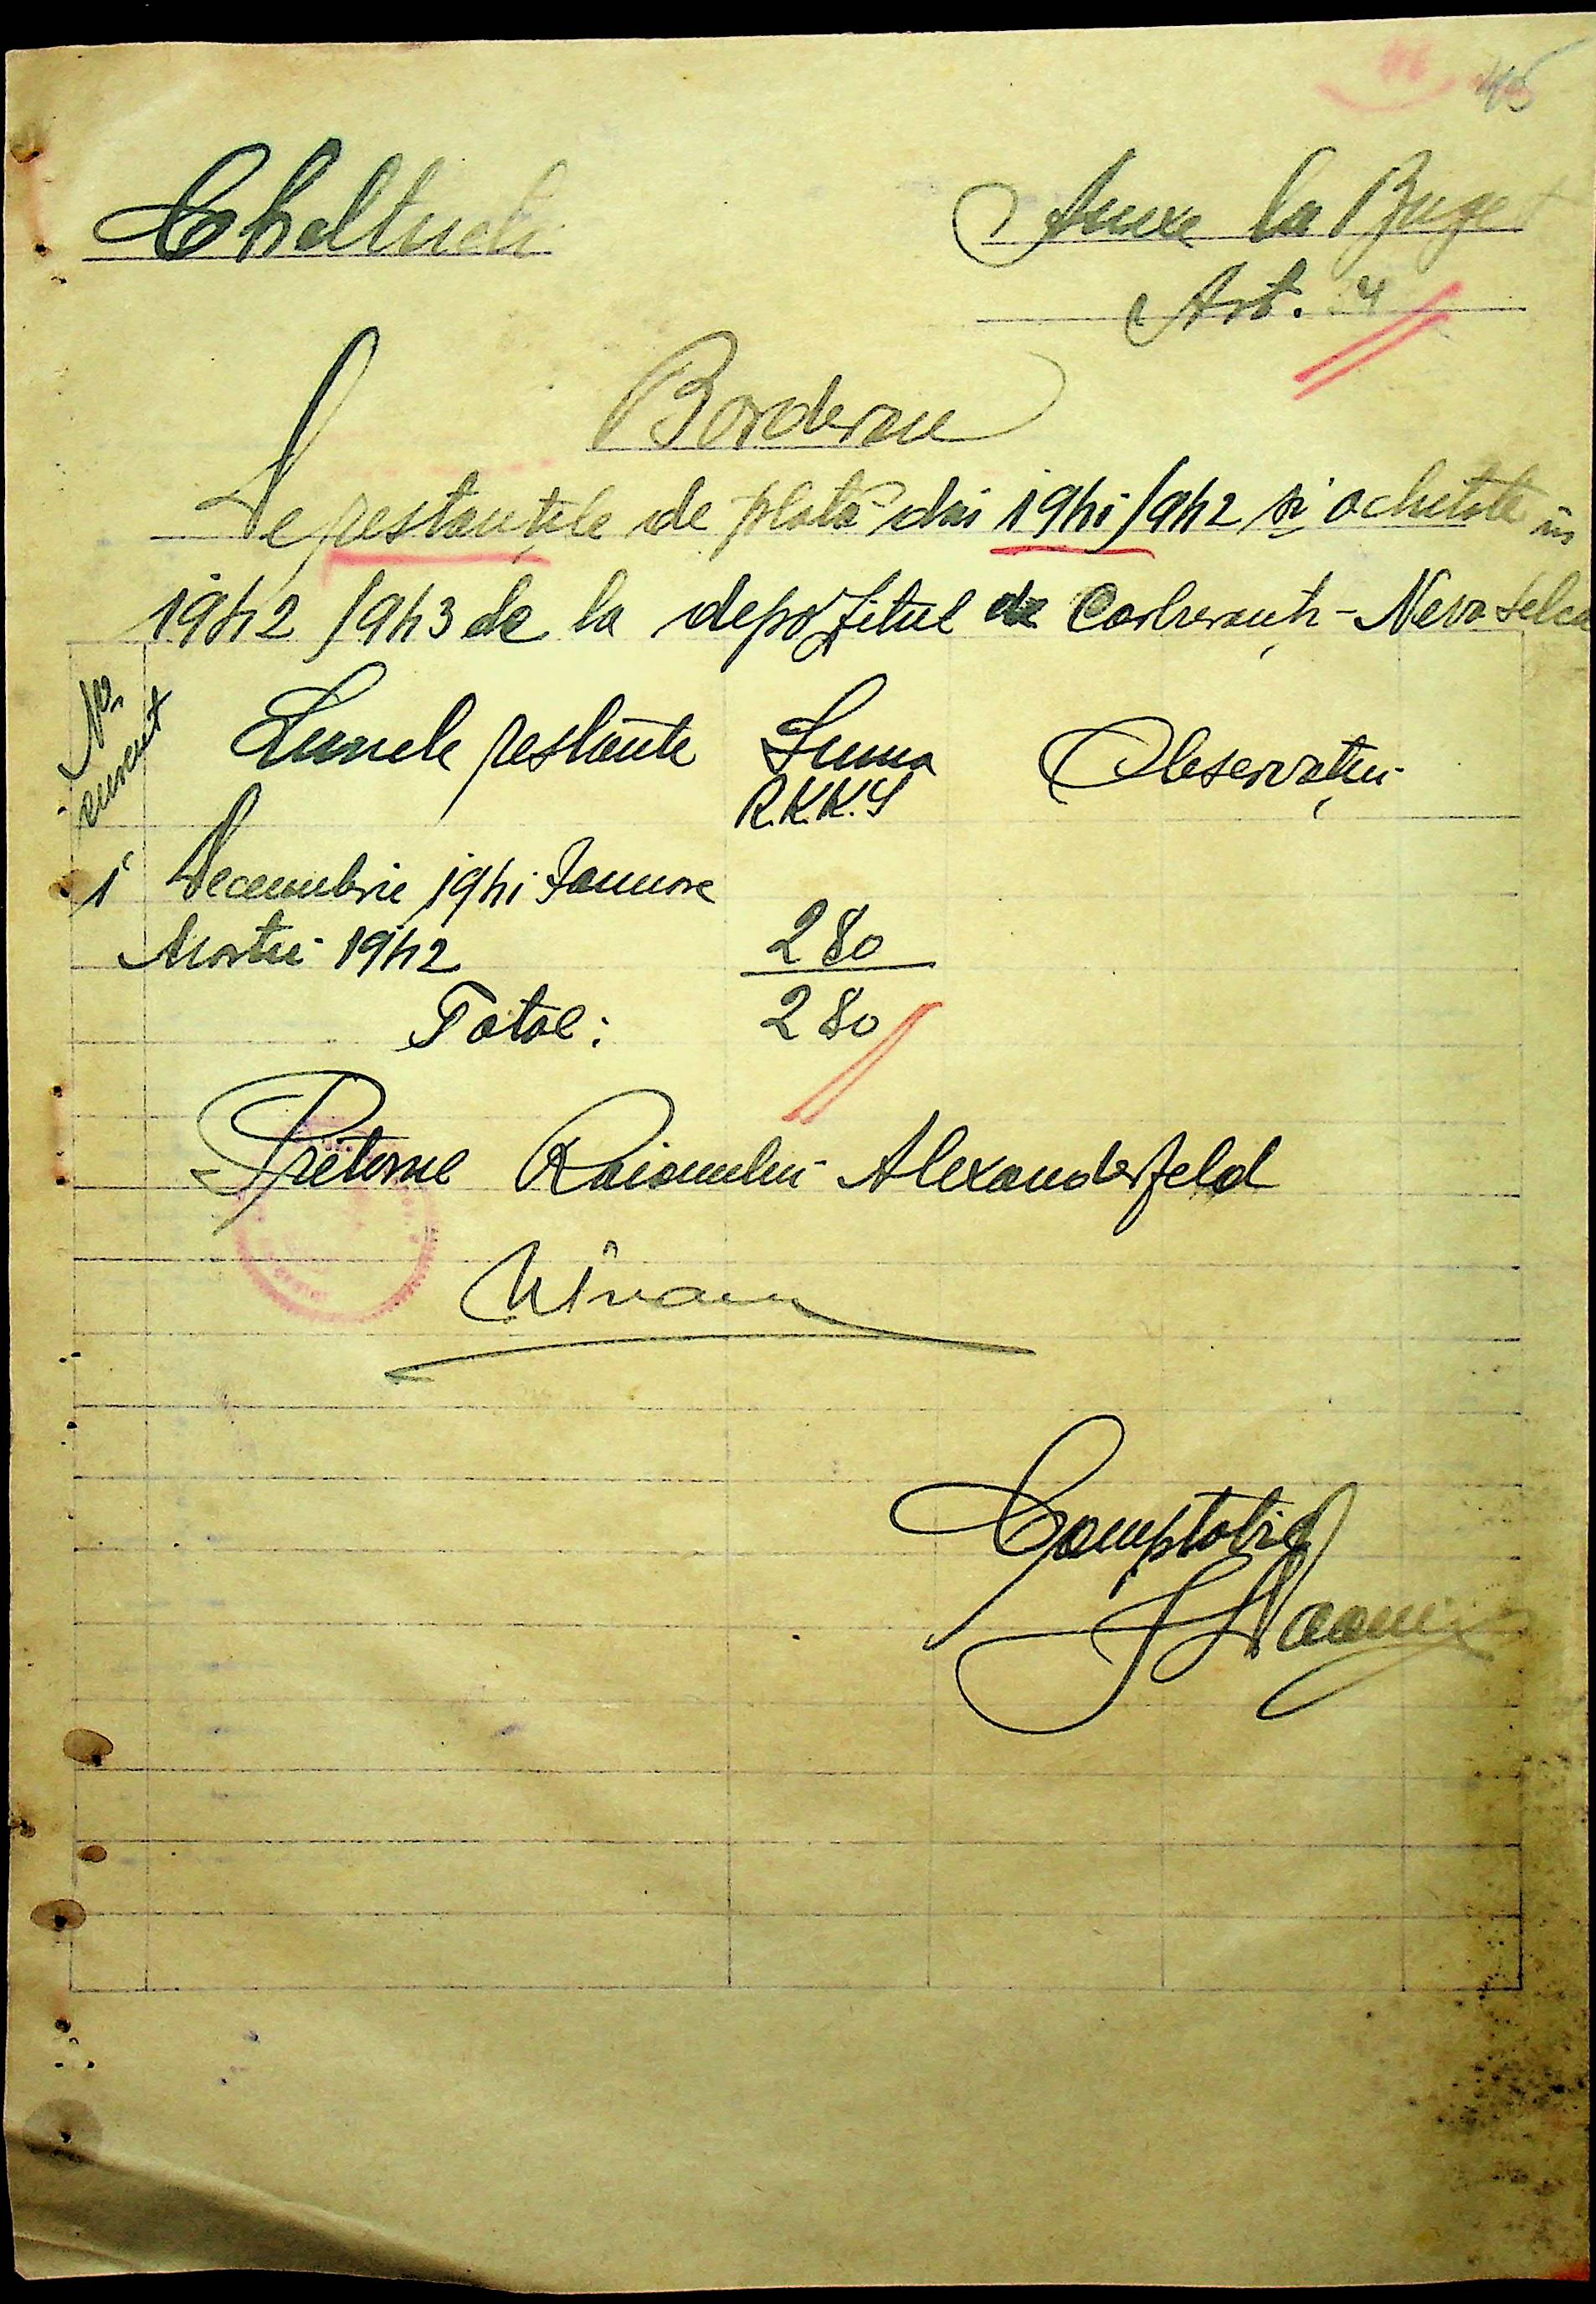 45
Cheltueli
Anexe la Buget
Art. 4
Borderou
De restanțele de plată din 1941/942 și achitate în
1942/943 de la depozitul de
No. curent
Lunele restante Suma Observațiuni
R.K.K.S
1 Decembrie 1941 Ianuarie
Martie 1942 280
Total: 280
Pretorul Raionului Alexanderfeld
Comptabil